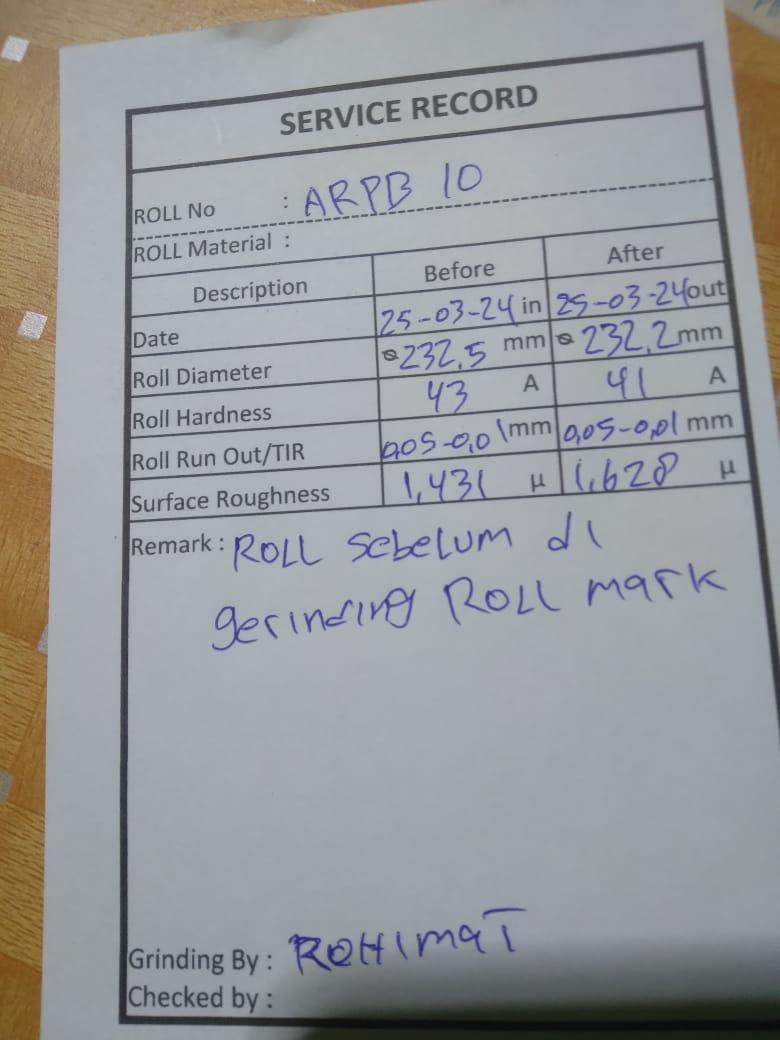 SERVICE RECORD
ROLL No : ARPB 10
ROLL Material :
Description Before After
Date 25-03-24 in 25-03-24 out
Roll Diameter ⌀232,5 mm ⌀232,2 mm
Roll Hardness 43 A 41 A
Roll Run Out/TIR 0,05-0,01 mm 0,05-0,01 mm
Surface Roughness 1,431 µ 1,628 µ
Remark : ROLL sebelum di
gerinding ROLL mark
Grinding By : ROHIMAT
Checked by :